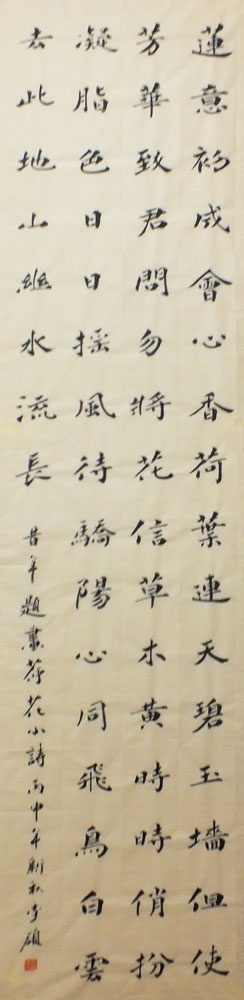 蓮意初成會心香荷葉連天碧玉墻但使
芳華致君問勿將花信草木黃時時俏扮
凝脂色日日搖風待驕陽心同飛鳥白雲
去此地山幽水流長 昔年題畫荷花小詩丙申年新秋